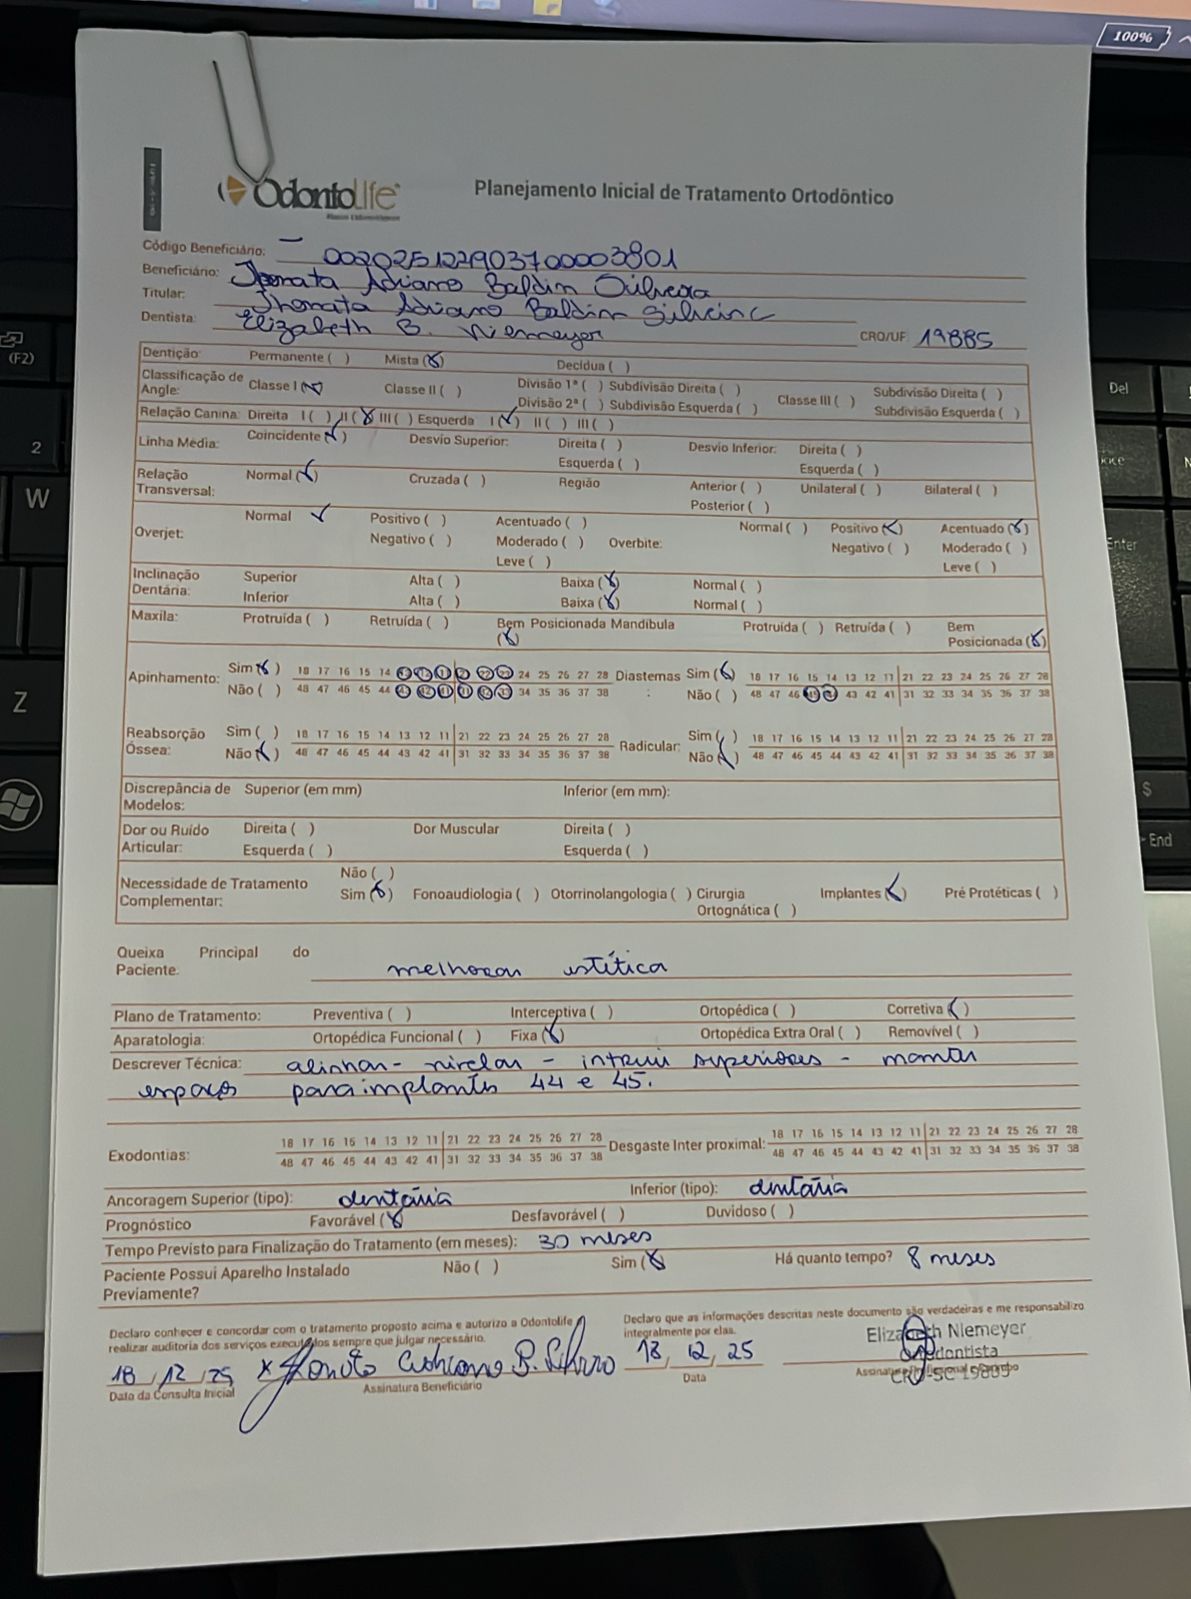 100%
Odontolife
Planejamento Inicial de Tratamento Ortodôntico
Código Beneficiário: 002025122903700003801
Beneficiário: Jhonata Adriano Baldim Silveira
Titular: Jhonata Adriano Baldim Silveira
Dentista: Elizabeth B. Niemeyer CRO/UF: 19885
Dentição: Permanente ( ) Mista (X) Decídua ( )
Classificação de Angle: Classe I (X) Classe II ( ) Divisão 1ª ( ) Subdivisão Direita ( ) Divisão 2ª ( ) Subdivisão Esquerda ( ) Classe III ( ) Subdivisão Direita ( ) Subdivisão Esquerda ( )
Relação Canina: Direita I ( ) II (X) III ( ) Esquerda I (X) II ( ) III ( )
Linha Média: Coincidente (X) Desvio Superior: Direita ( ) Esquerda ( ) Desvio Inferior: Direita ( ) Esquerda ( )
Relação Transversal: Normal (X) Cruzada ( ) Região Anterior ( ) Posterior ( ) Unilateral ( ) Bilateral ( )
Overjet: Normal ✓ Positivo ( ) Negativo ( ) Acentuado ( ) Moderado ( ) Leve ( ) Overbite: Normal ( ) Positivo (X) Negativo ( ) Acentuado (X) Moderado ( ) Leve ( )
Inclinação Dentária: Superior Alta ( ) Baixa (X) Normal ( )
Inferior Alta ( ) Baixa (X) Normal ( )
Maxila: Protruída ( ) Retruída ( ) Bem Posicionada (X) Mandíbula Protruída ( ) Retruída ( ) Bem Posicionada (X)
Apinhamento: Sim (X) 18 17 16 15 14 13 12 11 21 22 23 24 25 26 27 28 Diastemas: Sim (X) 18 17 16 15 14 13 12 11 21 22 23 24 25 26 27 28
Não ( ) 48 47 46 45 44 43 42 41 31 32 33 34 35 36 37 38 Não ( ) 48 47 46 45 44 43 42 41 31 32 33 34 35 36 37 38
Reabsorção Óssea: Sim ( ) 18 17 16 15 14 13 12 11 21 22 23 24 25 26 27 28 Radicular: Sim ( ) 18 17 16 15 14 13 12 11 21 22 23 24 25 26 27 28
Não (X) 48 47 46 45 44 43 42 41 31 32 33 34 35 36 37 38 Não (X) 48 47 46 45 44 43 42 41 31 32 33 34 35 36 37 38
Discrepância de Modelos: Superior (em mm) Inferior (em mm):
Dor ou Ruído Articular: Direita ( ) Esquerda ( ) Dor Muscular Direita ( ) Esquerda ( )
Necessidade de Tratamento Complementar: Não ( ) Sim (X) Fonoaudiologia ( ) Otorrinolangologia ( ) Cirurgia Ortognática ( ) Implantes (X) Pré Protéticas ( )
Queixa Principal do Paciente: melhorar estética
Plano de Tratamento: Preventiva ( ) Interceptiva ( ) Ortopédica ( ) Corretiva (X)
Aparatologia: Ortopédica Funcional ( ) Fixa (X) Ortopédica Extra Oral ( ) Removível ( )
Descrever Técnica: alinhar - nivelar - intruir superiores - manter
espaços para implantes 44 e 45.
Exodontias: 18 17 16 15 14 13 12 11 21 22 23 24 25 26 27 28 Desgaste Inter proximal: 18 17 16 15 14 13 12 11 21 22 23 24 25 26 27 28
48 47 46 45 44 43 42 41 31 32 33 34 35 36 37 38 48 47 46 45 44 43 42 41 31 32 33 34 35 36 37 38
Ancoragem Superior (tipo): dentária Inferior (tipo): dentária
Prognóstico Favorável (X) Desfavorável ( ) Duvidoso ( )
Tempo Previsto para Finalização do Tratamento (em meses): 30 meses
Paciente Possui Aparelho Instalado Previamente? Não ( ) Sim (X) Há quanto tempo? 8 meses
Declaro conhecer e concordar com o tratamento proposto acima e autorizo a Odontolife
realizar auditoria dos serviços executados sempre que julgar necessário.
Declaro que as informações descritas neste documento são verdadeiras e me responsabilizo
integralmente por elas.
18, 12, 25 Data da Consulta Inicial
x Jhonata Adriano B. Silveira Assinatura Beneficiário
18, 12, 25 Data
Elizabeth Niemeyer
Ortodontista
CRO-SC 19885
Assinatura Profissional e Carimbo
(F2)
2
W
Z
Del
Enter
$
End